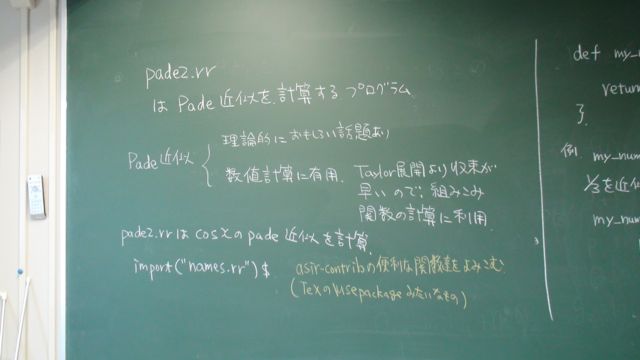 pade2.rr
は Pade 近似を計算するプログラム
Pade近似
理論的におもしろい話題あり
数値計算に有用. Taylor展開より収束が
早いので, 組みこみ
関数の計算に利用
pade2.rrはcosxのpade近似を計算.
import("names.rr")$
asir-contribの便利な関数達をよみこむ
(Texのusepackageみたいなもの)
def my_n
return
}.
例 my_num
1/3を近似
my_num